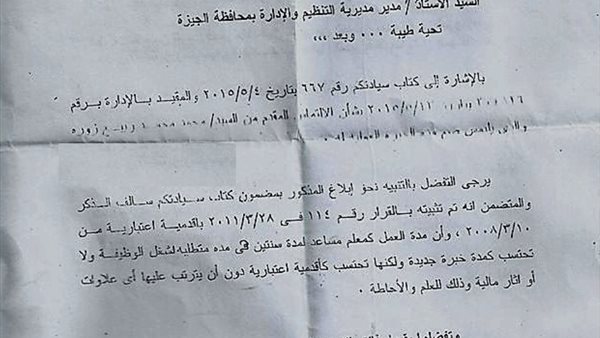 السيد الأستاذ / مدير مديرية التنظيم والإدارة بمحافظة الجيزة
تحية طيبة ٠٠٠ وبعد ،،،
بالإشارة إلى كتاب سيادتكم رقم ٦٦٧ بتاريخ ٢٠١٥/٥/٤ والمقيد بالإدارة برقم
بشأن الالتماس المقدم من السيد/
يرجى التفضل بالتنبيه نحو إبلاغ المذكور بمضمون كتاب سيادتكم سالف الذكر
والمتضمن انه تم تثبيته بالقرار رقم ١١٤ فى ٢٠١١/٣/٢٨ باقدمية اعتبارية من
٢٠٠٨/٣/١٠ ، وأن مدة العمل كمعلم مساعد لمدة سنتين هى مده متطلبه لشغل الوظيفة ولا
تحتسب كمدة خبرة جديدة ولكنها تحتسب كأقدمية اعتبارية دون أن يترتب عليها أى علاوات
أو اثار مالية وذلك للعلم والأحاطة ٠